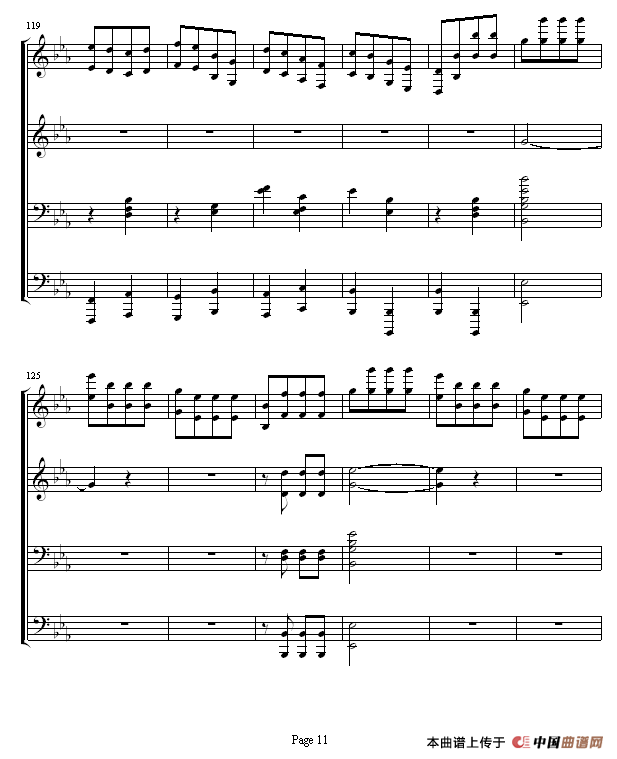 119
125
Page 11
本曲谱上传于 中国曲谱网